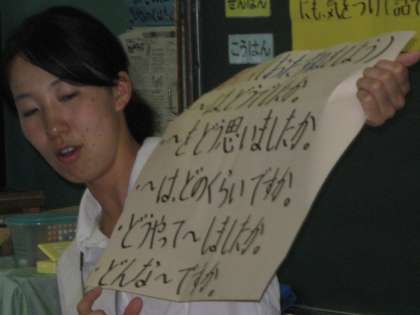 ぜんはん
にも、気をつけて話
こうはん
〜はどうでしたか。
・〜をどう思いましたか。
・〜は、どのくらいですか。
・どうやって〜しましたか。
・どんな〜ですか。